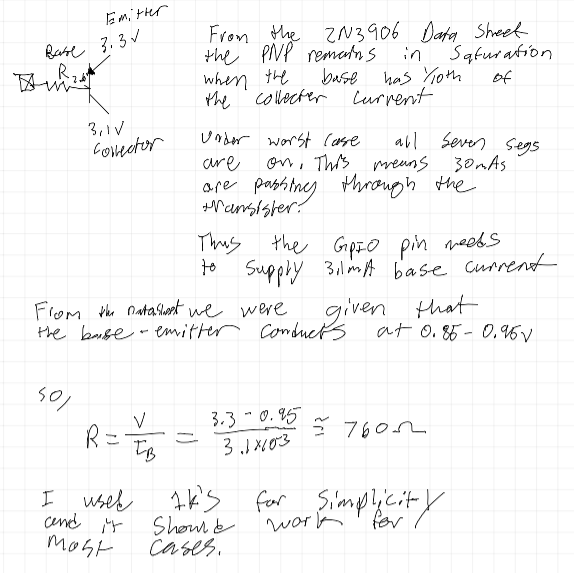 Emitter
3.3V
Base
R
3.1V
Collector
From the 2N3906 Data Sheet
the PNP remains in Saturation
when the base has 1/10th of
the collecter current
Under worst case all seven segs
are on. This means 30mAs
are passing through the
transister.
Thus the GPIO pin needs
to supply 3.1mA base current
From the Datasheet we were given that
the base-emitter conducts at 0.85-0.95v
so,
R = V/I_B = 3.3-0.95/3.1x10^3 ≅ 760Ω
I used 1k's for simplicity
and it should work for
most cases.